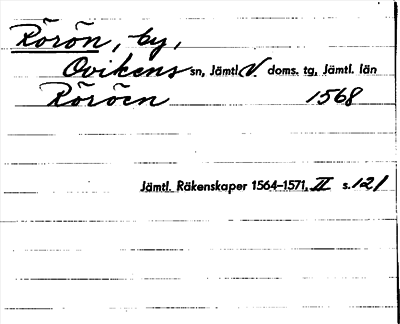 Rörön, by,
Ovikens sn, Jämtl. V. doms. tg, Jämtl. län
Röröen 1568
Jämtl. Räkenskaper 1564-1571, II s. 121